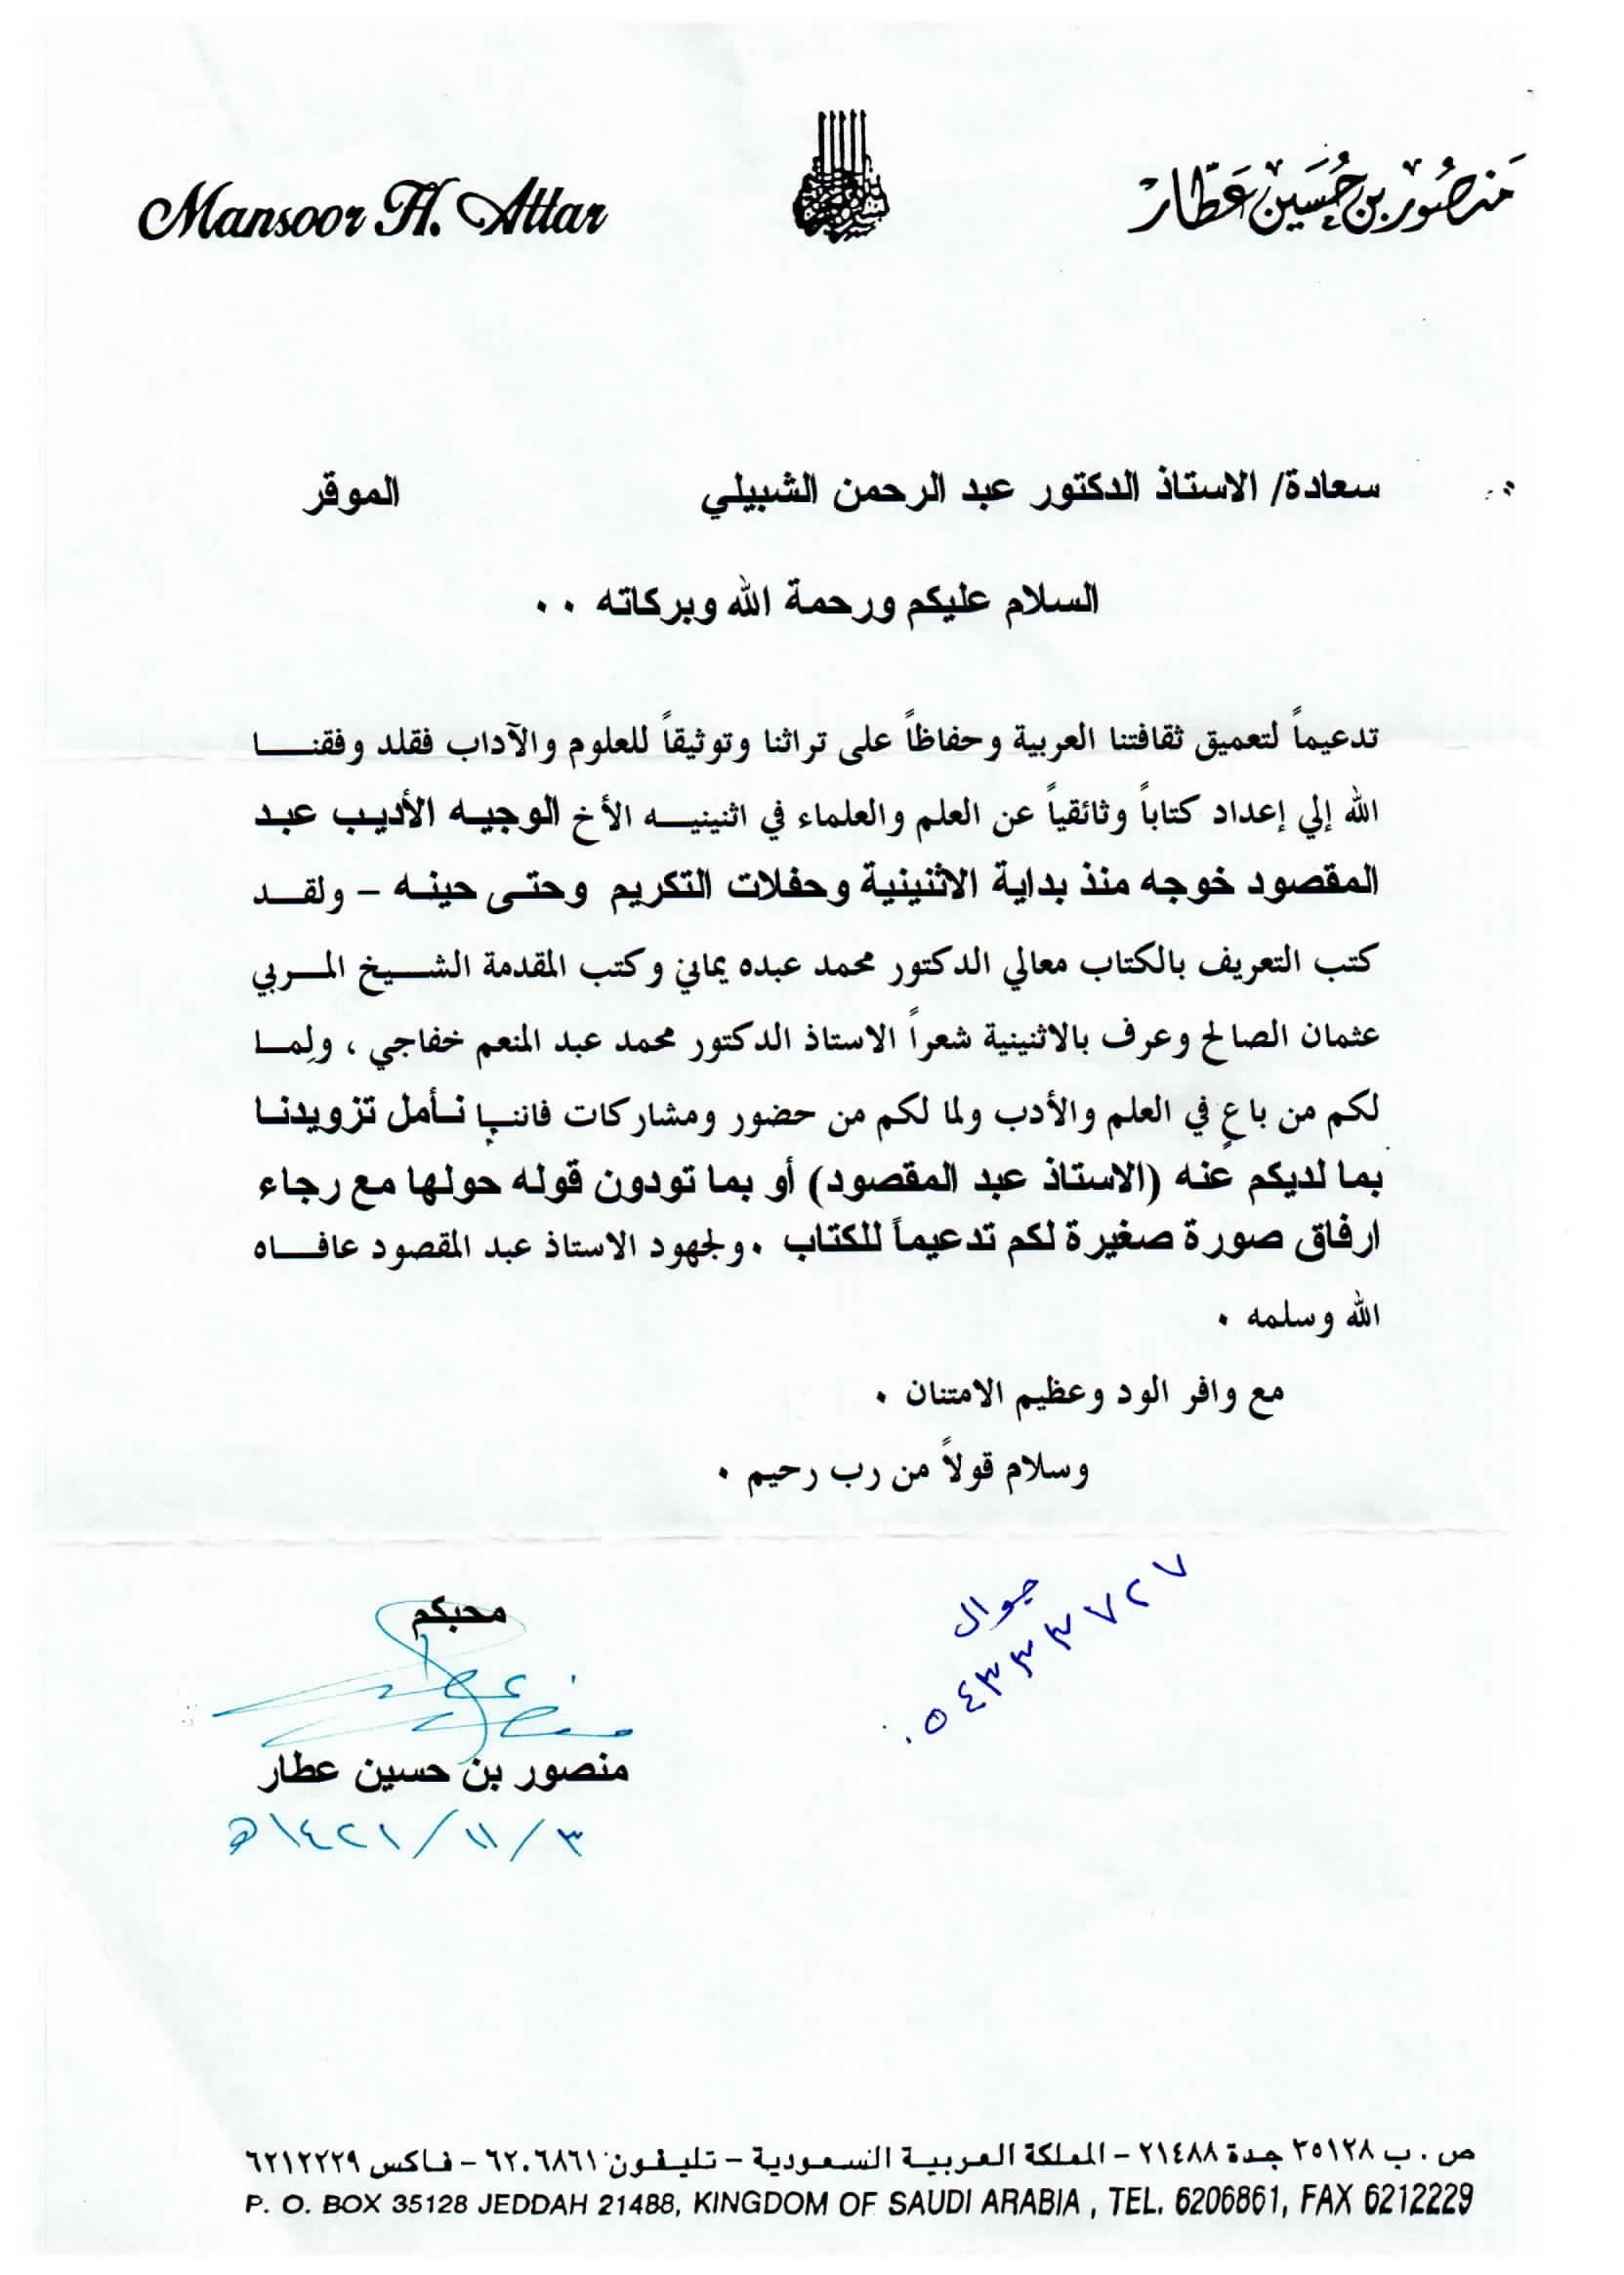 منصور بن حسين عطار
Mansoor H. Attar
سعادة/ الاستاذ الدكتور عبد الرحمن الشبيلي الموقر
السلام عليكم ورحمة الله وبركاته ٠٠
تدعيماً لتعميق ثقافتنا العربية وحفاظاً على تراثنا وتوثيقاً للعلوم والآداب فقلد وفقنـــا
الله إلي إعداد كتاباً وثائقياً عن العلم والعلماء في اثنينيـــه الأخ الوجيـه الأديـب عبـد
المقصود خوجه منذ بداية الاثنينية وحفلات التكريم وحتـى حينـه – ولقــد
كتب التعريف بالكتاب معالي الدكتور محمد عبده يماني وكتب المقدمة الشـــيخ المــربي
عثمان الصالح وعرف بالاثنينية شعراً الاستاذ الدكتور محمد عبد المنعم خفاجي ، ولِمــا
لكم من باعٍ في العلم والأدب ولما لكم من حضور ومشاركات فاننــا نـأمل تزويدنـا
بما لديكم عنه (الاستاذ عبد المقصود) أو بما تودون قوله حولها مع رجاء
ارفاق صورة صغيرة لكم تدعيماً للكتاب ٠ ولجهود الاستاذ عبد المقصود عافـــاه
الله وسلمه ٠
مع وافر الود وعظيم الامتنان ٠
وسلام قولاً من رب رحيم ٠
جوال
٠٥٤٣٣٣٧٢٧
محبكم
منصور بن حسين عطار
٣/١١/١٤٢١هـ
ص . ب ٣٥١٢٨ جدة ٢١٤٨٨ – المملكة العربية السعودية – تليفون ٦٢٠٦٨٦١ – فاكس ٦٢١٢٢٢٩
P. O. BOX 35128 JEDDAH 21488, KINGDOM OF SAUDI ARABIA , TEL. 6206861, FAX 6212229